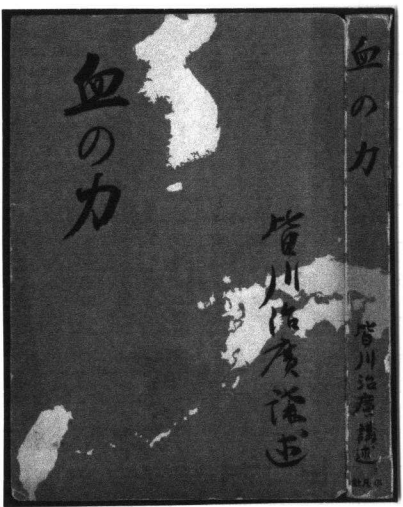 血の力
皆川治廣講述
血の力
皆川治廣講述